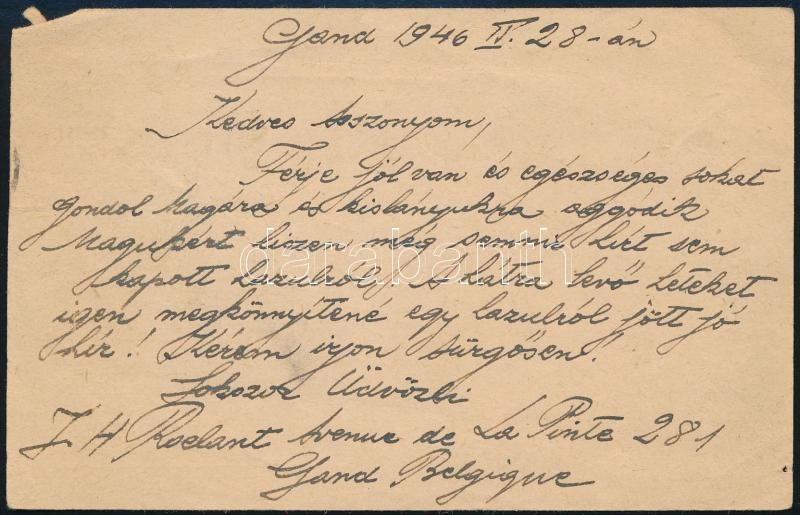 Gand 1946 IV. 28-án
Kedves Asszonyom,
Férje jól van és egészséges sokat
gondol Magára és kislányukra aggódik
Magukért hiszen még semmi hírt sem
kapott hazulról. A hátra levő heteket
igen megkönnyítené egy hazulról jött jó
hír! Kérem irjon sürgősen!
Sokszor Üdvözli
J H Roelant Avenue de La Pinte 281
Gand Belgique
darabanth.com